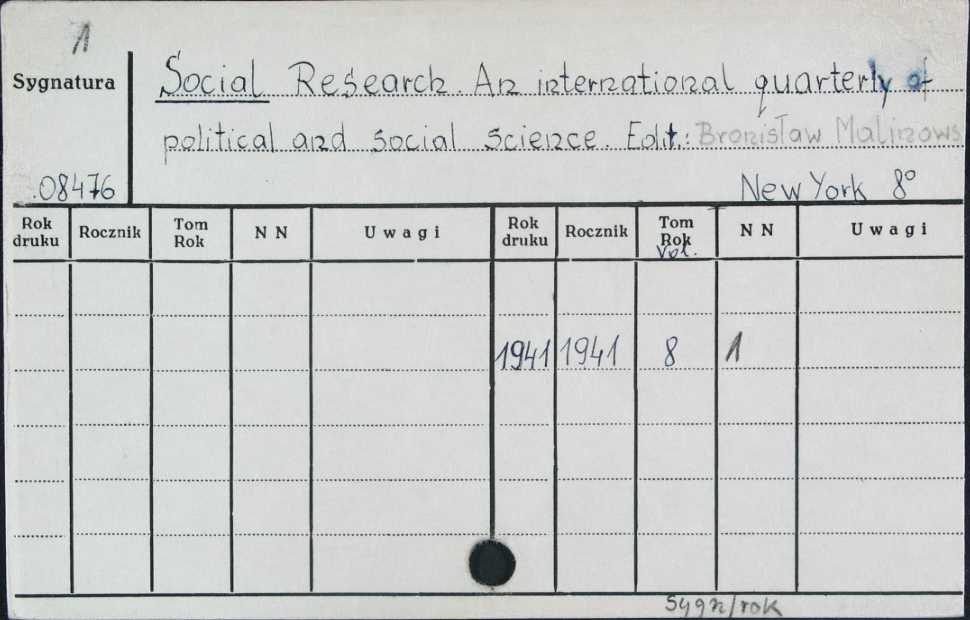 1
Sygnatura
Social Research. An international quarterly of
political and social science. Edit.: Bronisław Malinows
08476
New York 8°
Rok druku Rocznik Tom Rok N N Uwagi Rok druku Rocznik Tom Rok Vol. N N Uwagi
1941 1941 8 1
Sygn/rok